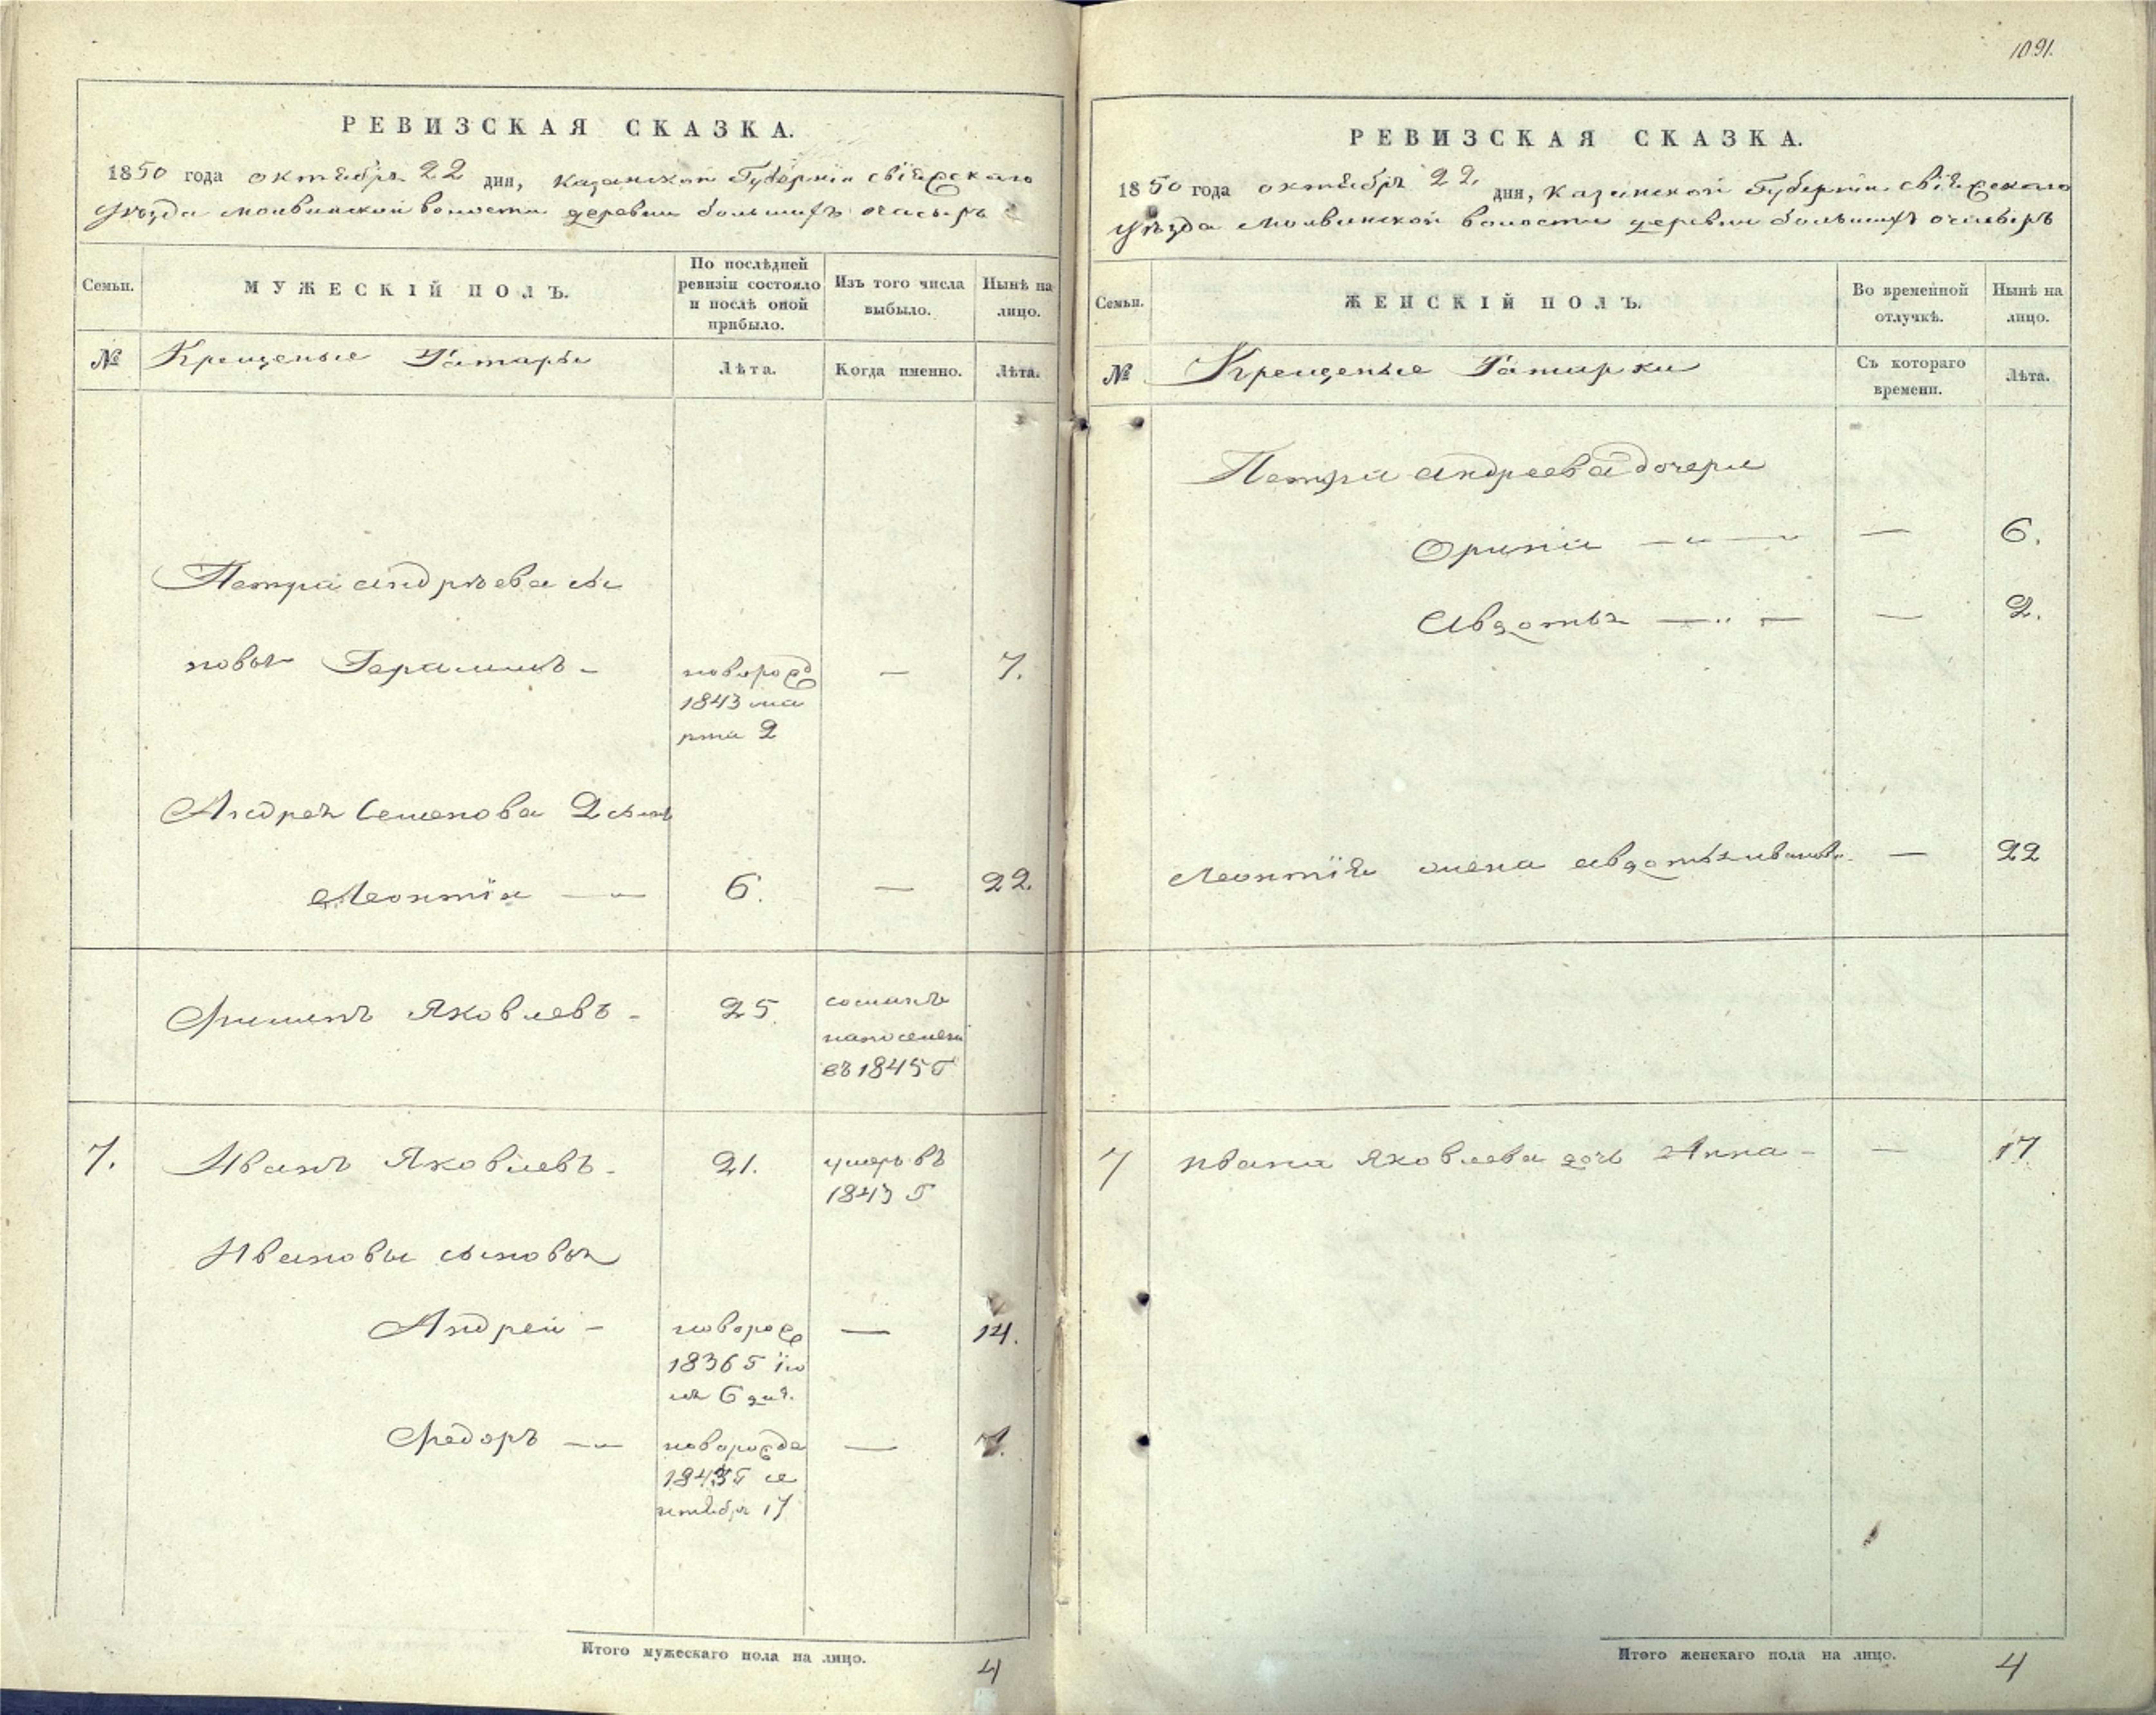 1091.
РЕВИЗСКАЯ СКАЗКА.
1850 года октября 22 дня, Казанской Губерніи свіяжскаго
уѣзда молвинской волости деревни большихъ
Семьи.
МУЖЕСКІЙ ПОЛЪ.
По послѣдней ревизіи состояло и послѣ оной прибыло.
Изъ того числа выбыло.
Нынѣ на лицо.
№
Крещеные Татары
Лѣта.
Когда именно.
Лѣта.
Петра андрѣева сы
новья Герасимъ - новорожд — 7.
1843 ма
рта 2
Андрея Семенова 2 сынъ
Леонтіи — 6. — 22.
Яковлевъ - 25. сосланъ
на поселені
въ 1845 г
7. Иванъ Яковлевъ - 21. умеръ въ
1843 г
Ивановы сыновья
Андреи - новорож — 14.
1836 г ію
ля 6 дня.
Федоръ — новорожда — 7.
1843 г се
нтября 17
Итого мужескаго пола на лицо. 4
РЕВИЗСКАЯ СКАЗКА.
1850 года октября 22 дня, Казанской Губерніи свіяжскаго
уѣзда молвинской волости деревни большихъ
Семьи.
ЖЕНСКІЙ ПОЛЪ.
Во временной отлучкѣ.
Нынѣ на лицо.
№
Крещеные Татарки
Съ котораго времени.
Лѣта.
Петра андреева дочери
Орина — — 6.
Авдотья — — 2.
Леонтія жена авдотья иванова — 22
7 ивана яковлева дочь Анна - — 17
Итого женскаго пола на лицо. 4